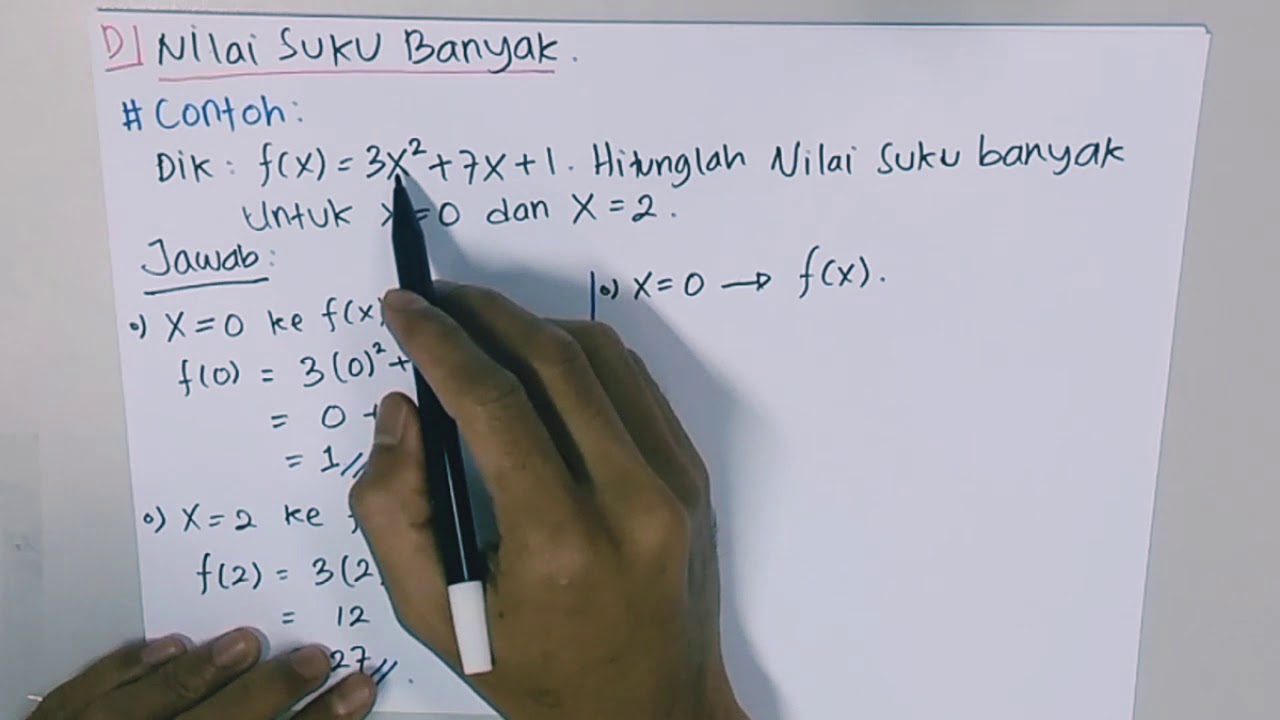 D] Nilai Suku Banyak.
# Contoh:
Dik : f(x) = 3x² + 7x + 1. Hitunglah Nilai Suku banyak
Untuk x = 0 dan X = 2.
Jawab:
•) X = 0 ke f(x)
f(0) = 3(0)² +
= 0 +
= 1//
•) X = 2 ke f
f(2) = 3(2
= 12
27//.
•) X = 0 → f(x).